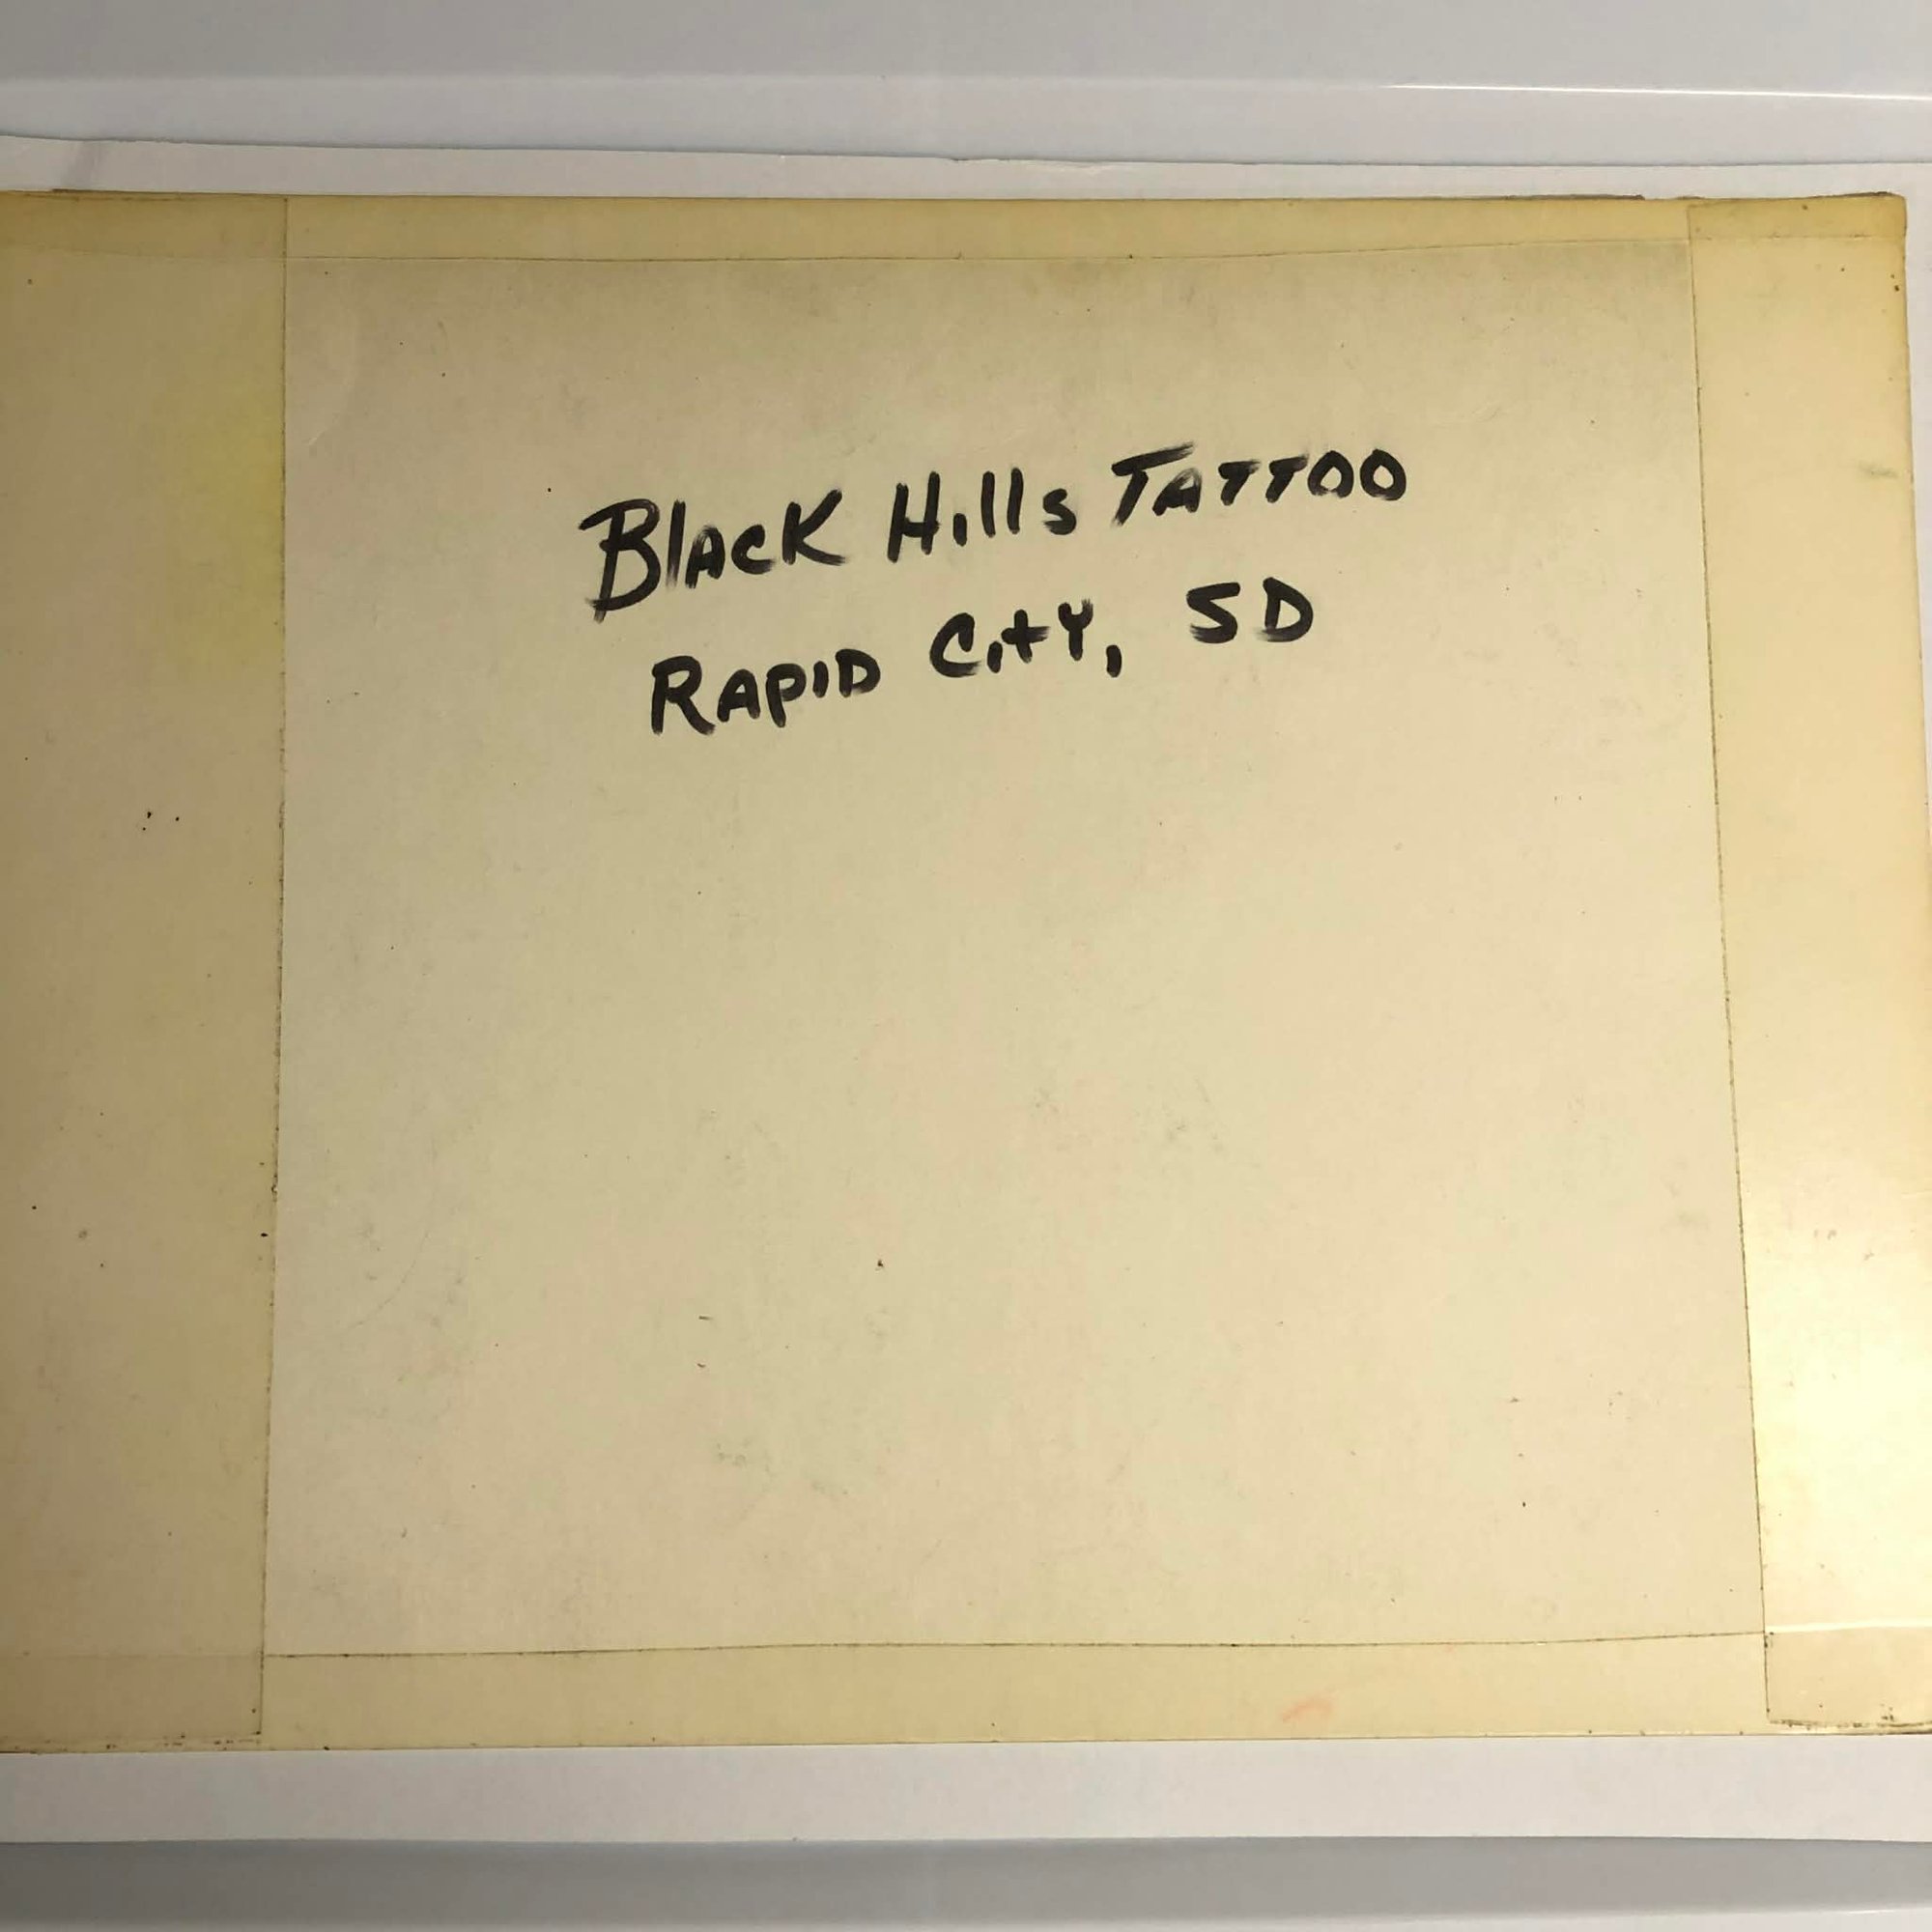 Black Hills TATTOO
RAPID City, SD